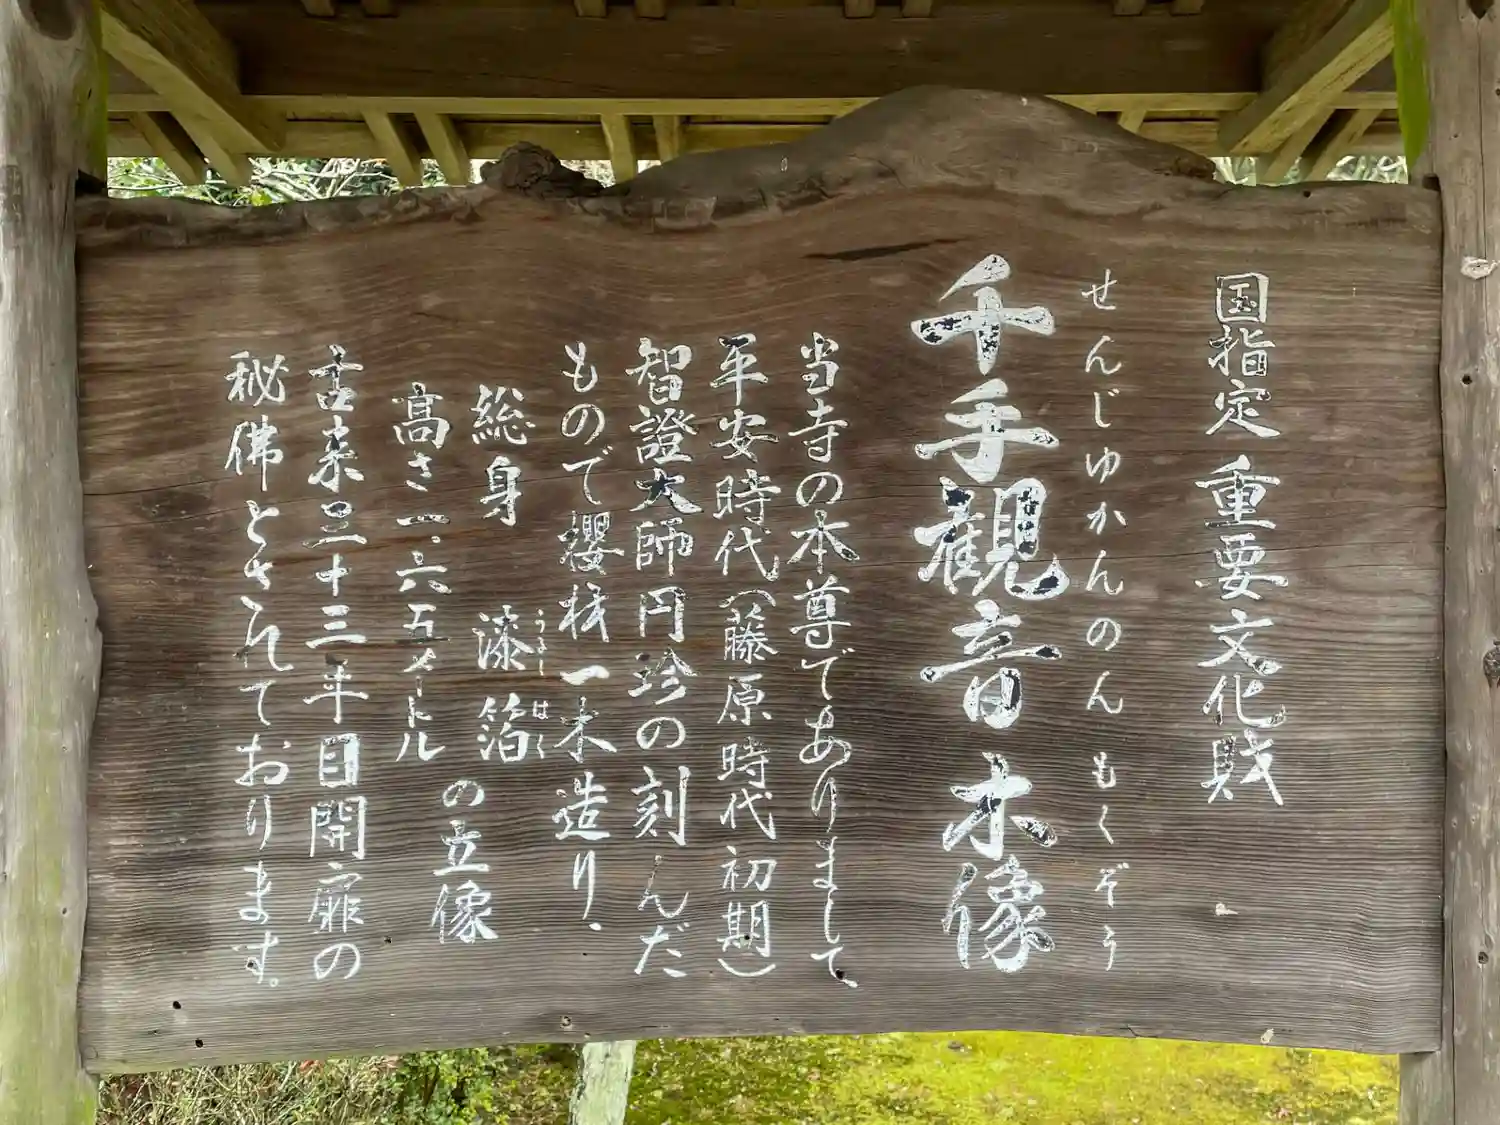 国指定 重要文化財
せんじゅかんのん もくぞう
千手観音 木像
当寺の本尊でありまして
平安時代(藤原時代初期)
智證大師円珍の刻んだ
もので櫻材一木造り、
総身 漆箔
うるし はく
の立像
高さ一・六五メートル
古来三十三年目開扉の
秘佛とされております。